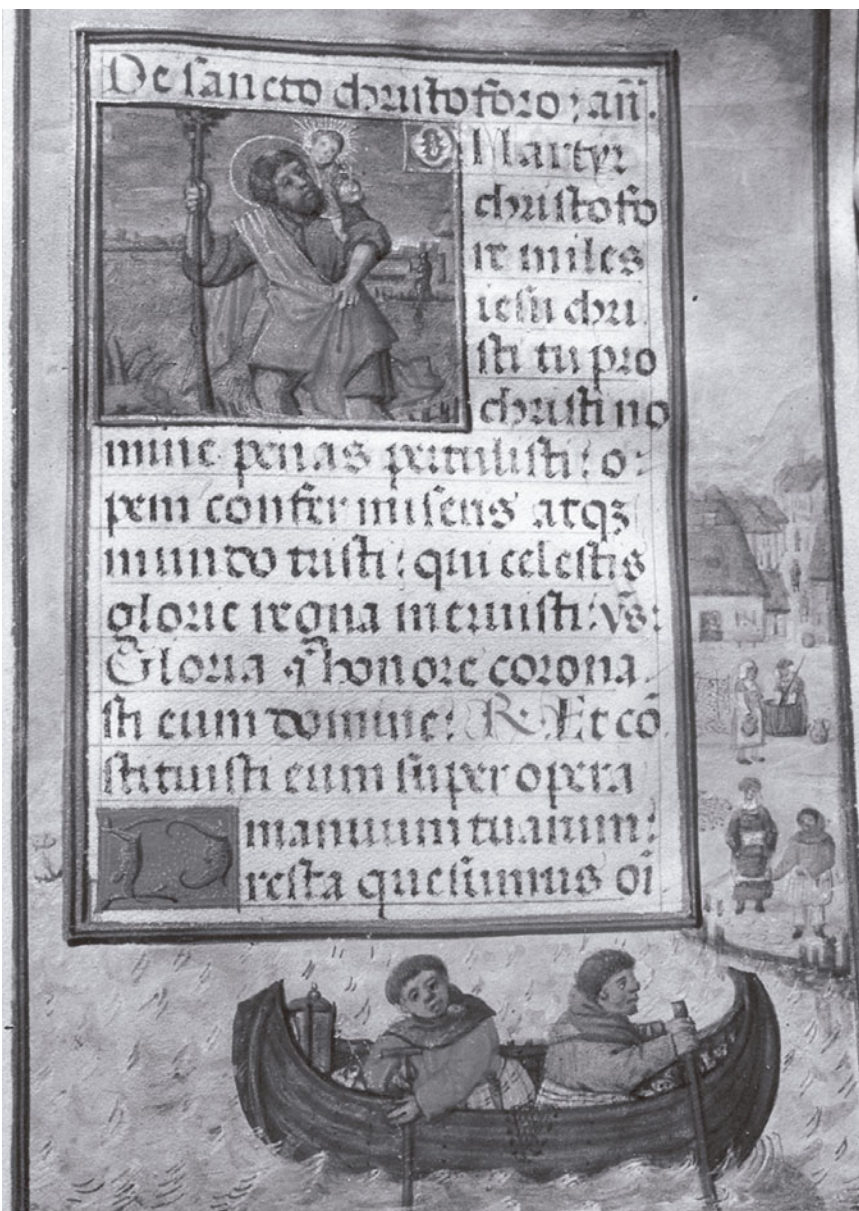 De sancto christoforo; añ.
O Martyr
christofo
re miles
iesu chri
sti tu pro
christi no
mine penas pertulisti: o:
pem confer miseris atqꝫ
mundo tristi: qui celestis
glorie regna meruisti: v̄s:
Gloria ⁊ honore corona
sti eum domine: R. Et cō
stituisti eum super opera
manuum tuarum:
resta quesumus oī